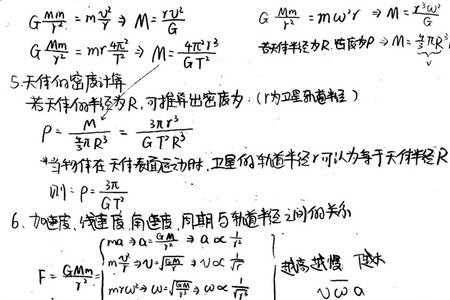 G Mm/r² = m v²/r ⇒ M = rv²/G
G Mm/r² = mω²r ⇒ M = r³ω²/G
G Mm/r² = mr 4π²/T² ⇒ M = 4π²r³/GT²
若天体半径为R, 密度为ρ ⇒ M = 4/3 πR³
5. 天体的密度计算
若天体的半径为R, 可推导出密度为: (r为卫星轨道半径)
ρ = M / (4/3 πR³) = 3πr³ / GT²R³
*当物体在天体表面运动时, 卫星的轨道半径r可认为等于天体半径R
则: ρ = 3π/GT²
6. 加速度, 线速度, 角速度, 周期与轨道半径之间的关系
F = GMm/r² =
ma ⇒ a = GM/r² ⇒ a ∝ 1/r²
m v²/r ⇒ v = √(GM/r) ⇒ v ∝ 1/√r
mrω² ⇒ ω = √(GM/r³) ⇒ ω ∝ 1/√r³
越高越慢
v ω a